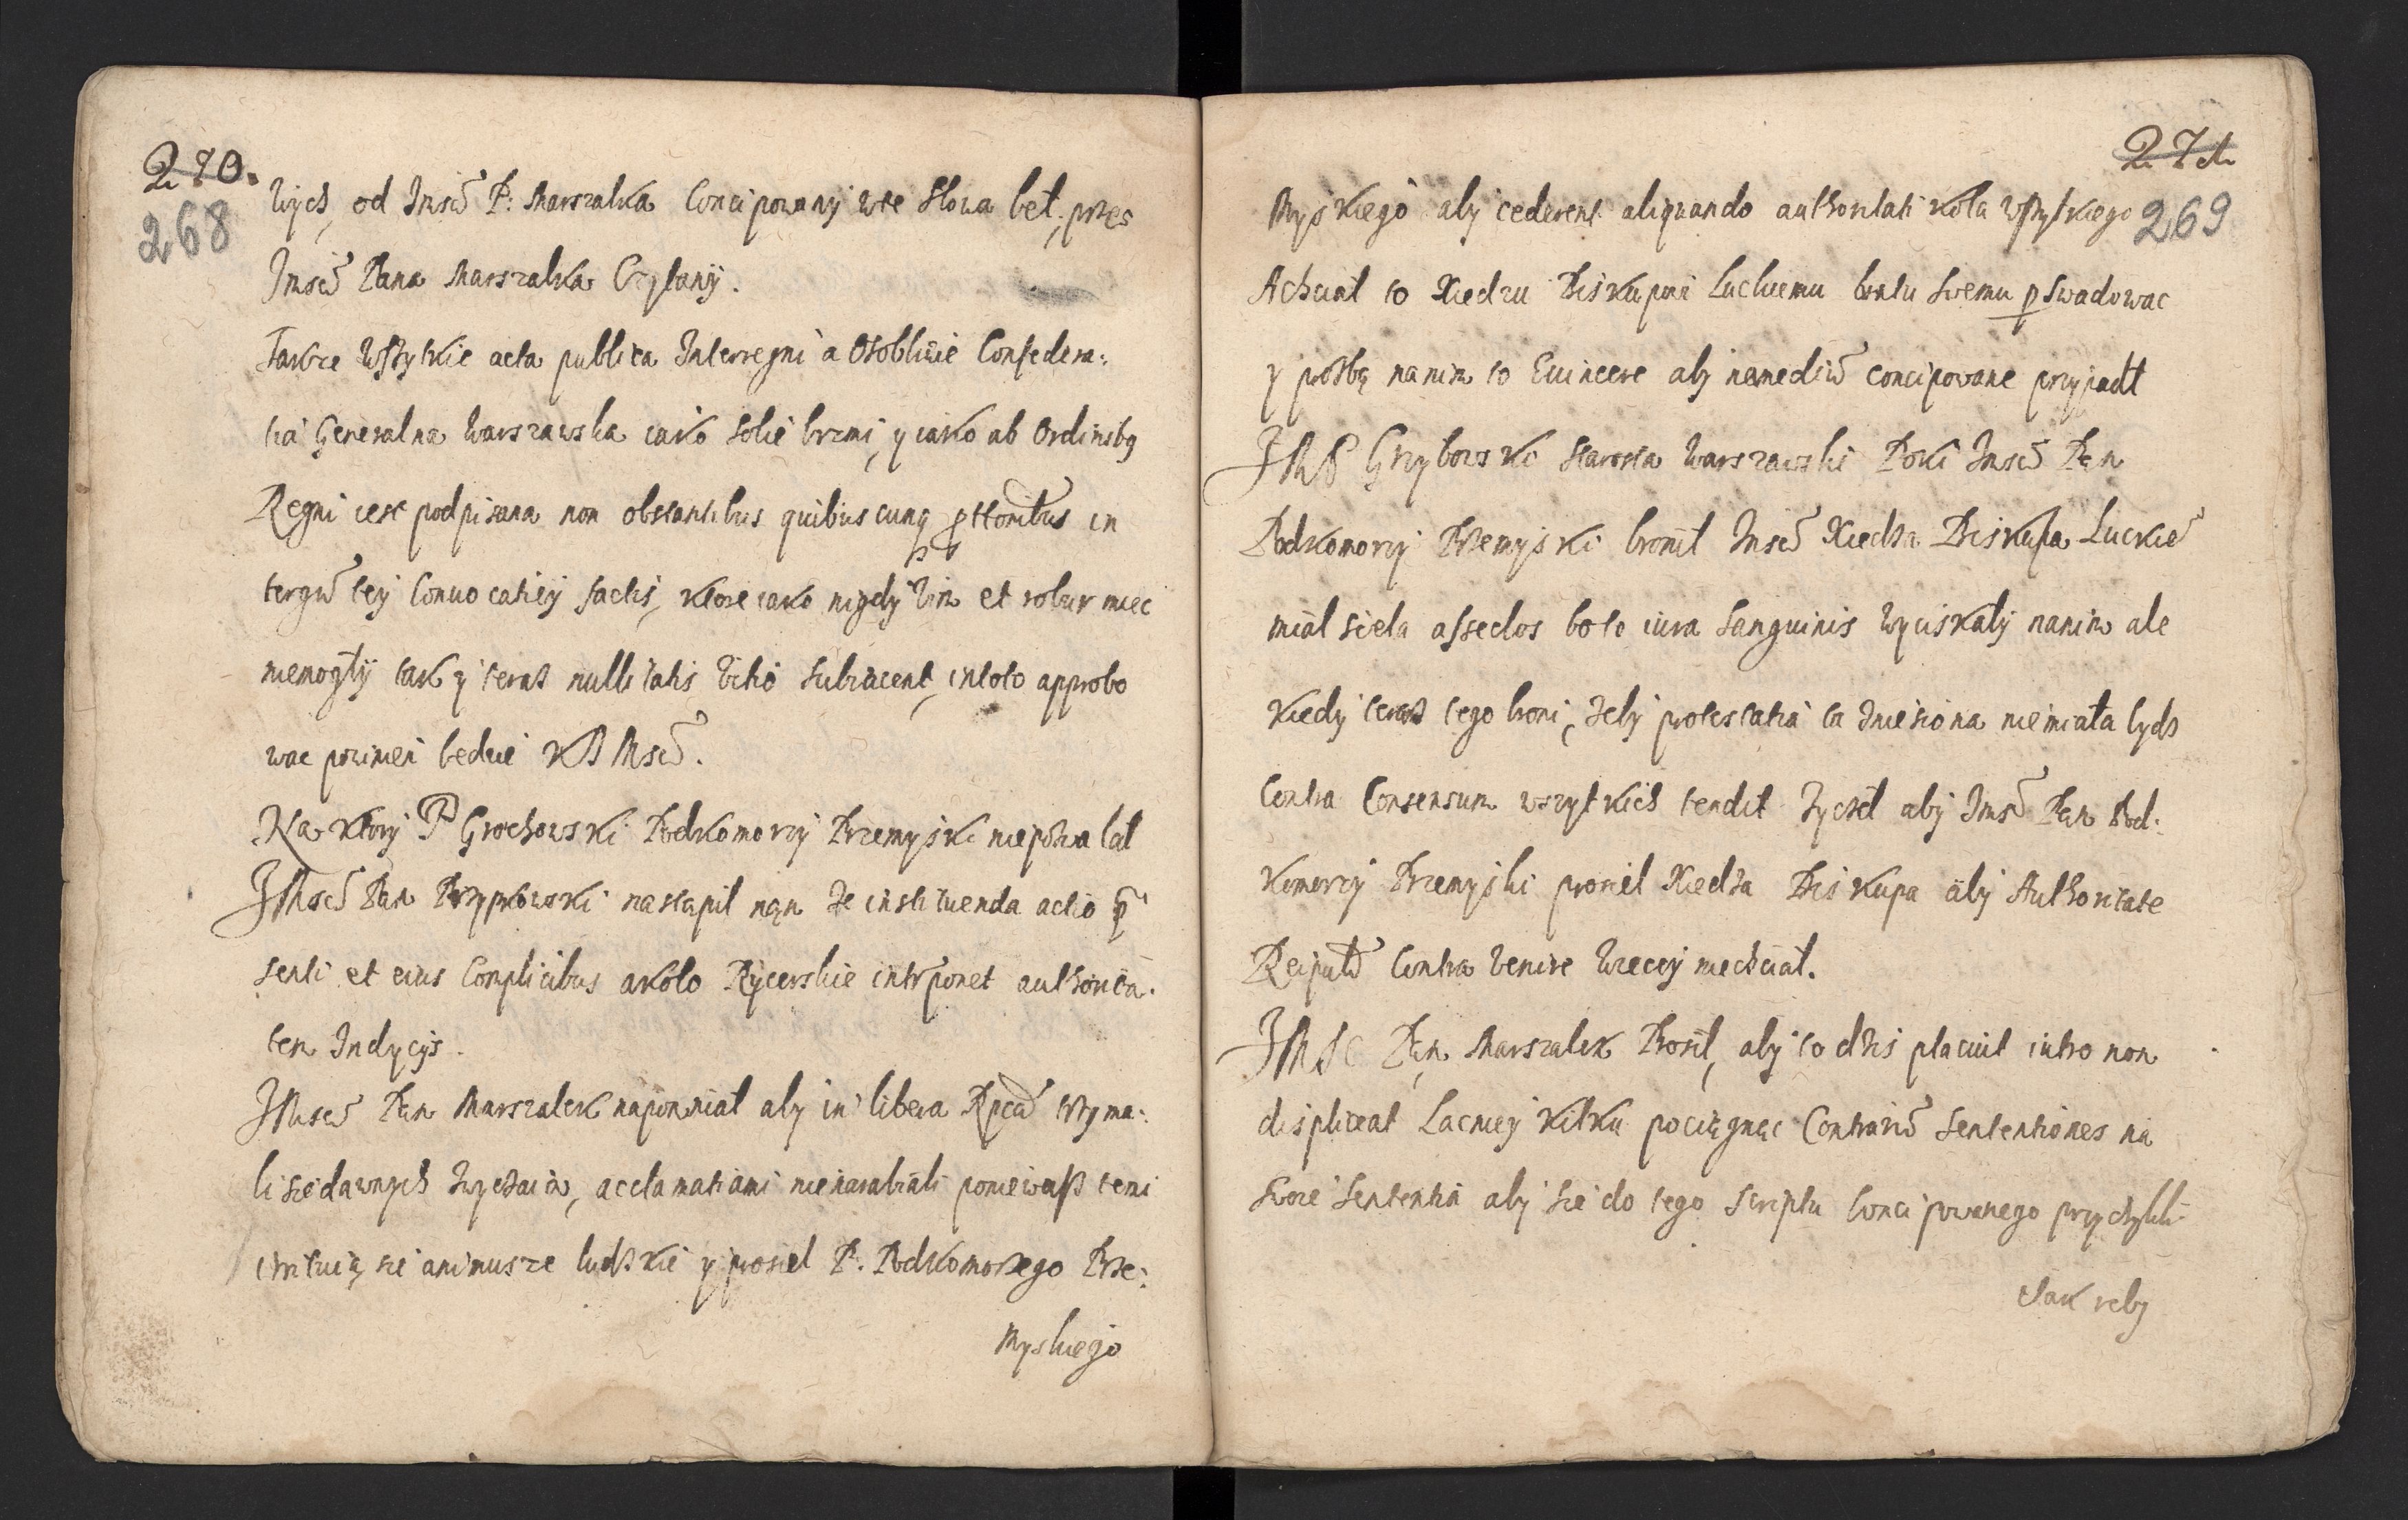 270.
268
wych, od Jmsci P: Marszalka Concipowany wte Słowa bet, przes
Jmsci Pana Marszalka Czytany.
Takze wszytkie acta publica Interregni a Osobliwie Confedera:
tia Generalna Warszawska iako sobie brzmi, y iako ab Ordinibq
Regni iest podpisana non obstantibus quibus cunq in
tergu tey Convocatiey factis, ktore iako nigdy vim et robur miec
niemogły tak y teras nullitatis vitio subiacent, intoto approbo
wac powinien bedzie KJ Msci.
Na ktory P Grochowski Podkomorzy Przemyski niepozwalał
JMsci Pan Przypkowski nastąpil nąn ze instituenda actio
senti et eius Complicibus akoło Rycerskie intrponet authorita:
tem Indycijs.
JMsci Pan Marszalek napominał aby in libera Rpca trzyma:
li sie dawnych zwyczaiow, acclamatiami nienarabiali poniewasz temi
irrituią sie animusze ludzkie y prosiel P. Podkomorzego Prze:
myskiego
271
269
Myskiego aby cederent aliquando authoritati koła wszytkiego
Achciał to Xiedzu Biskupowi Luckiemu bratu swemu pswadowac
y prozbą nanim to Evincere aby concipowane przyiadł
JMP Grzybowski Starosta Warszawski Poki Jmsci Pan
Podkomorzy Przemyski bronił Jmsci Xiedza Biskupa Luckie
miał siela assedos boto iura Sanguinis wyciskały nanim ale
kiedy teras tego broni, zeby protestatia ta Jniesiona niemiała bydz
Contra Consensum wszytkich tendit zyczel aby Jms Pan Pod:
komorzy Przemyski prosiel Xiedza Biskupa aby Authoritate
Reipub Contra venire wiecey niechciał.
JMSc Pan Marszalek Prosił, aby to dzis placuit intro non
displiceat Lacniey kilku pociągnąc Contrario sententiones na
swoie Sententia aby sie do tego Scriptu Concipowanego przychyleli
Jak zeby